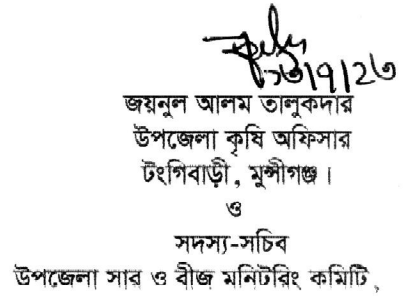 ১৩/৭/২৩
জয়নুল আলম তালুকদার
উপজেলা কৃষি অফিসার
টংগিবাড়ী, মুন্সীগঞ্জ।
ও
সদস্য-সচিব
উপজেলা সার ও বীজ মনিটরিং কমিটি,